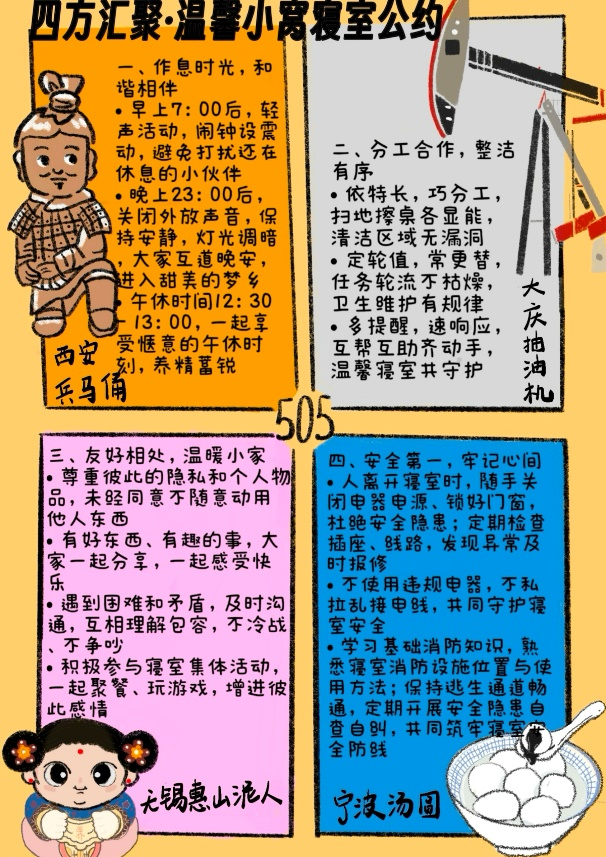 四方汇聚·温馨小窝寝室公约
一、作息时光，和
谐相伴
• 早上7：00后，轻
声活动，闹钟设震
动，避免打扰还在
休息的小伙伴
• 晚上23：00后，
关闭外放声音，保
持安静，灯光调暗
，大家互道晚安，
进入甜美的梦乡
• 午休时间12：30
- 13：00，一起享
受惬意的午休时
刻，养精蓄锐
西安
兵马俑
二、分工合作，整洁
有序
• 依特长，巧分工，
扫地擦桌各显能，
清洁区域无漏洞
• 定轮值，常更替，
任务轮流不枯燥，
卫生维护有规律
• 多提醒，速响应，
互帮互助齐动手，
温馨寝室共守护
大庆抽油机
505
三、友好相处，温暖小家
• 尊重彼此的隐私和个人物
品，未经同意不随意动用
他人东西
• 有好东西、有趣的事，大
家一起分享，一起感受快
乐
• 遇到困难和矛盾，及时沟
通，互相理解包容，不冷战
、不争吵
• 积极参与寝室集体活动，
一起聚餐、玩游戏，增进彼
此感情
无锡惠山泥人
四、安全第一，牢记心间
• 人离开寝室时，随手关
闭电器电源、锁好门窗，
杜绝安全隐患；定期检查
插座、线路，发现异常及
时报修
• 不使用违规电器，不私
拉乱接电线，共同守护寝
室安全
• 学习基础消防知识，熟
悉寝室消防设施位置与使
用方法；保持逃生通道畅
通，定期开展安全隐患自
查自纠，共同筑牢寝室安
全防线
宁波汤圆